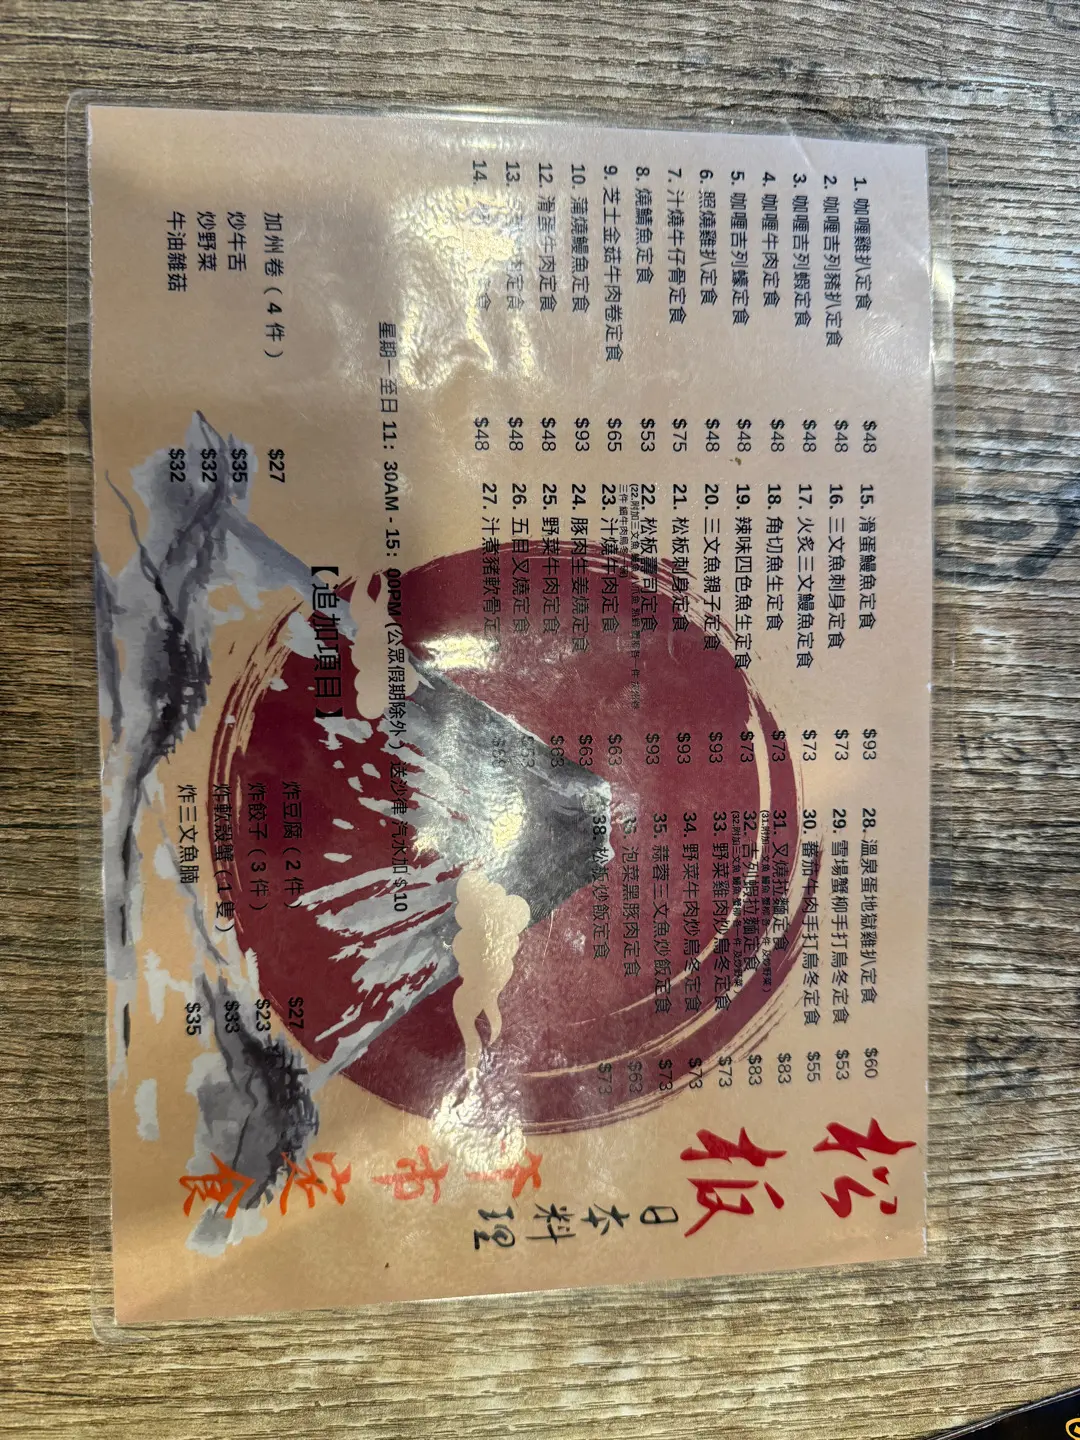 松板
日本料理
午市定食
1. 咖喱雞扒定食 $48
2. 咖喱吉列豬扒定食 $48
3. 咖喱吉列蝦定食 $48
4. 咖喱牛肉定食 $48
5. 咖喱吉列蠔定食 $48
6. 照燒雞扒定食 $48
7. 汁燒牛仔骨定食 $75
8. 燒鯖魚定食 $53
9. 芝士金菇牛肉卷定食 $65
10. 蒲燒鰻魚定食 $93
12. 滑蛋牛肉定食 $48
13. 肉定食 $48
14. 食 $48
15. 滑蛋鰻魚定食 $93
16. 三文魚刺身定食 $73
17. 火炙三文鰻魚定食 $73
18. 角切魚生定食 $73
19. 辣味四色魚生定食 $73
20. 三文魚親子定食 $93
21. 松板刺身定食 $93
22. 松板壽司定食 $93
(22.附加三文魚 鰻魚
三件 細牛肉烏冬一碗)
23. 汁燒牛肉定食 $63
24. 豚肉生姜燒定食 $63
25. 野菜牛肉定食 $63
26. 五目叉燒定食
27. 汁煮豬軟骨定
28. 溫泉蛋地獄雞扒定食 $60
29. 雪場蟹柳手打烏冬定食 $53
30. 蕃茄牛肉手打烏冬定食 $55
31. 叉燒拉麵定食 $83
(31.附加三文魚 鰻魚 蟹柳 各一件 及炒野菜)
32. 吉列蝦拉麵定食 $83
(32.附加三文魚 鰻魚 蟹柳 各一件 及炒野菜)
33. 野菜雞肉炒烏冬定食 $73
34. 野菜牛肉炒烏冬定食 $73
35. 蒜蓉三文魚炒飯定食 $73
泡菜黑豚肉定食 $63
38. 松板炒飯定食 $73
星期一至日 11：30AM - 15：00PM (公眾假期除外) 送沙律 汽水加 $10
【追加項目】
加州卷 ( 4 件 ) $27
炒牛舌 $35
炒野菜 $32
牛油雜菇 $32
炸豆腐 ( 2 件 ) $27
炸餃子 ( 3 件 ) $23
炸軟殼蟹 ( 1 隻 ) $33
炸三文魚腩 $35